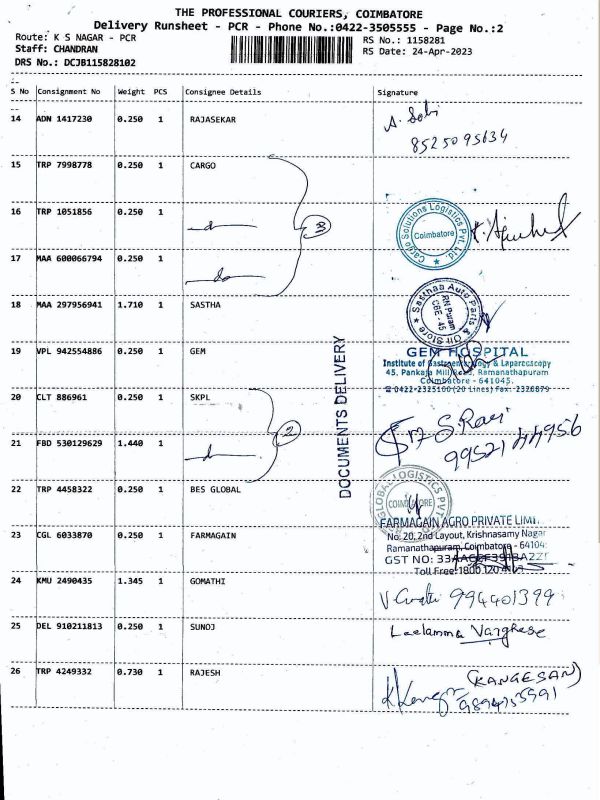 THE PROFESSIONAL COURIERS, COIMBATORE
Delivery Runsheet - PCR - Phone No.:0422-3505555 - Page No.:2
Route: K S NAGAR - PCR
RS No.: 1158281
Staff: CHANDRAN
RS Date: 24-Apr-2023
DRS No.: DCJB115828102
S No Consignment No Weight PCS Consignee Details Signature
14 ADN 1417230 0.250 1 RAJASEKAR
8525095634
15 TRP 7998778 0.250 1 CARGO
16 TRP 1051856 0.250 1
3
Cargo Solutions Logistics Pvt. Ltd.
Coimbatore
17 MAA 600066794 0.250 1
18 MAA 297956941 1.710 1 SASTHA
Sasthaa Auto Parts & Oil Store
RN Puram
CBE - 45
19 VPL 942554886 0.250 1 GEM
GEM HOSPITAL
Institute of Gastroenterology & Laparoscopy
45, Pankaja Mill Road, Ramanathapuram
Coimbatore - 641045.
0422-2325100 (20 Lines) Fax: 2320879
DOCUMENTS DELIVERY
20 CLT 886961 0.250 1 SKPL
2
S. Ravi
99521 44956
21 FBD 530129629 1.440 1
22 TRP 4458322 0.250 1 BES GLOBAL
GLOBAL LOGISTICS
COIMBATORE
23 CGL 6033870 0.250 1 FARMAGAIN
FARMAGAIN AGRO PRIVATE LIMI
No: 20, 2nd Layout, Krishnasamy Nagar
Ramanathapuram, Coimbatore - 64104
GST NO:
Toll Free: 1800 120
24 KMU 2490435 1.345 1 GOMATHI
994401399
25 DEL 910211813 0.250 1 SUNOJ
Leelamma Varghese
26 TRP 4249332 0.730 1 RAJESH
(KANGESAN)